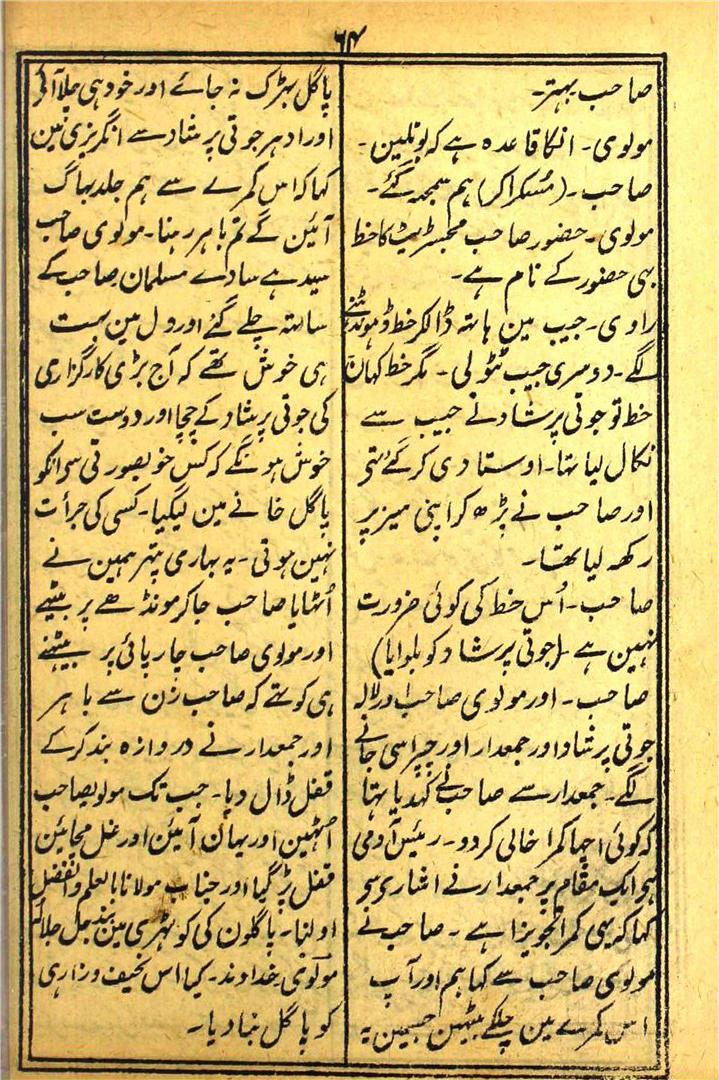 ۶۴
صاحب بہتر۔
مولوی۔ انکا قاعدہ ہے کہ بوتلین۔
صاحب۔ (مُسکراکر) ہم سمجہ گئے۔
مولوی۔ حضور صاحب مجسٹریٹ کا خط
بہی حضور کے نام ہے۔
راوی۔ جیب مین ہاتہ ڈالکر خط ڈہونڈہنے
لگے۔ دوسری جیب ٹٹولی۔ مگر خط کہان
خط تو جوتی پرشاد نے جیب سے
نکال لیا تہا۔ اوستادی کرگئے تہے
اور صاحب نے پڑھ کر اپنی میز پر
رکھہ لیا تھا۔
صاحب۔ اُس خط کی کوئی ضرورت
نہین ہے۔ (جوتی پرشاد کو بلوایا)
صاحب۔ اور مولوی صاحب اور لالہ
جوتی پرشاد اور جمعدار اور چپراسی جانے
لگے۔ جمعدار سے صاحب نے کہدیا تہا
کہ کوئی اچہا کمرا خالی کردو۔ رئیس آدمی
ہی ایک مقام پر جمعدار نے اشاری سی
کہا کہ یہی کمرا تجویزا ہے۔ صاحب نے
مولوی صاحب سے کہا ہم اور آپ
اس کمرے مین چلکے بیٹہین جسمین یہ
پاگل بہڑک نہ جائے اور خود ہی چلا آئے
اور ادہر جوتی پرشاد سے انگریزی مین
کہا کہ اس کمرے سے ہم جلد بہاگ
آئین گے تم باہر رہنا۔ مولوی صاحب
سید ہے سادے مسلمان صاحب کے
ساتہ چلے گئے اور دل مین بہت
ہی خوش تھے کہ آج بڑی کارگزاری
کی جوتی پرشاد کے چچا اور دوست سب
خوش ہونگے کہ کس خوبصورتی سی انکو
پاگل خانے مین لیگیا۔ کسی کی جرأت
نہین ہوتی۔ یہ بہاری پتہر ہمین نے
اُٹہایا صاحب جاکر مونڈھے پر بیٹہے
اور مولوی صاحب چارپائی پر بیٹہنے
ہی کو تہے کہ صاحب زن سے باہر
اور جمعدار نے دروازہ بند کرکے
قفل ڈال دیا۔ جب تک مولویصاحب
اُٹہین اور یہان آئین اور غل مچائین
قفل پڑگیا اور جناب مولانا بالعلم والفضل
اولنا۔ پاگلون کی کوٹہری مین بند
مولوی۔ خداوند۔ کیا اس نحیف و زار ہی
کو پاگل بنادیا۔